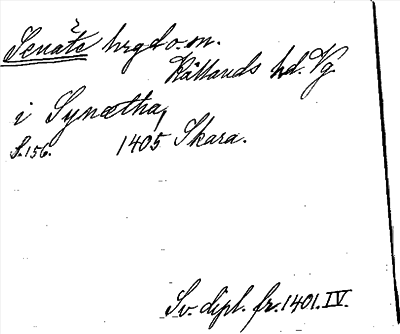 Senäte hrgd o. sn.
Kållands hd. Vg
i Synætha,
S. 156. 1405 Skara.
Sv. dipl. fr. 1401. IV.